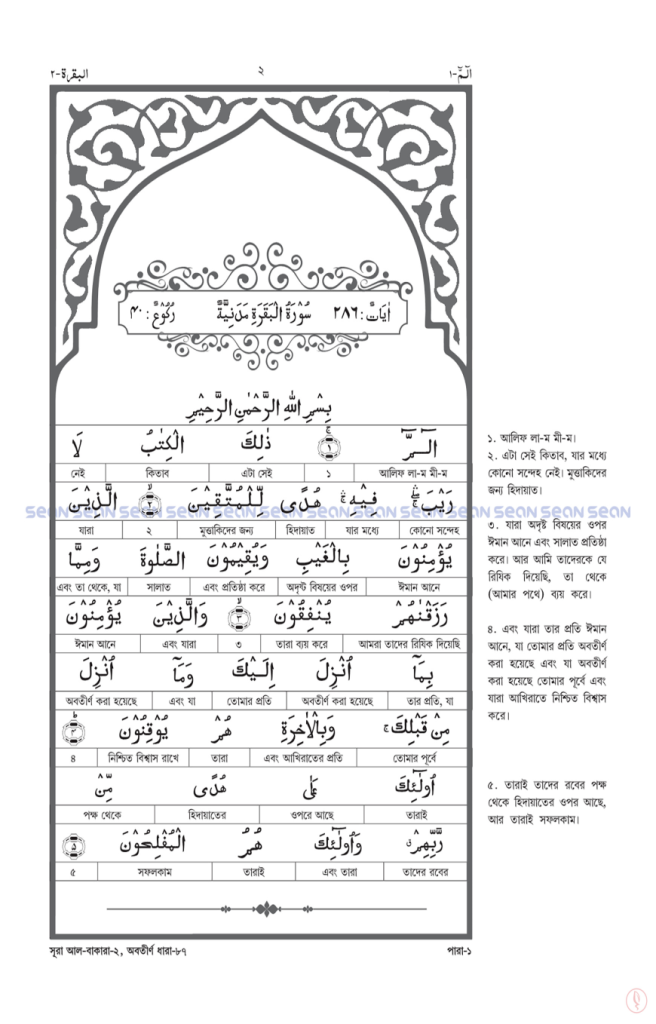 البقرة-٢
٢
الٓمّٓ-١
اٰيَاتٌ: ٢٨٦ سُوْرَةُ الْبَقَرَةِ مَدَنِيَّةٌ رُكُوْعٌ: ٤٠
بِسْمِ اللّٰهِ الرَّحْمٰنِ الرَّحِيْمِ
الٓمّٓ ۚ ١ ذٰلِكَ الْكِتٰبُ لَا
নেই কিতাব এটা সেই ১ আলিফ লা-ম মী-ম
رَيْبَ ۛۚ فِيْهِ ۛۚ هُدًى لِّلْمُتَّقِيْنَ ۙ ٢ الَّذِيْنَ
যারা ২ মুত্তাকিদের জন্য হিদায়াত যার মধ্যে কোনো সন্দেহ
يُؤْمِنُوْنَ بِالْغَيْبِ وَيُقِيْمُوْنَ الصَّلٰوةَ وَمِمَّا
এবং তা থেকে, যা সালাত এবং প্রতিষ্ঠা করে অদৃষ্ট বিষয়ের ওপর ঈমান আনে
رَزَقْنٰهُمْ يُنْفِقُوْنَ ۙ ٣ وَالَّذِيْنَ يُؤْمِنُوْنَ
ঈমান আনে এবং যারা ৩ তারা ব্যয় করে আমরা তাদের রিযিক দিয়েছি
بِمَآ اُنْزِلَ اِلَيْكَ وَمَآ اُنْزِلَ
অবতীর্ণ করা হয়েছে এবং যা তোমার প্রতি অবতীর্ণ করা হয়েছে তার প্রতি, যা
مِنْ قَبْلِكَ ۚ وَبِالْاٰخِرَةِ هُمْ يُوْقِنُوْنَ ؕ ٤
৪ নিশ্চিত বিশ্বাস রাখে তারা এবং আখিরাতের প্রতি তোমার পূর্বে
اُولٰٓئِكَ عَلٰى هُدًى مِّنْ
পক্ষ থেকে হিদায়াতের ওপরে আছে তারাই
رَّبِّهِمْ ۗ وَاُولٰٓئِكَ هُمُ الْمُفْلِحُوْنَ ٥
৫ সফলকাম তারাই এবং তারা তাদের রবের
১. আলিফ লা-ম মী-ম।
২. এটা সেই কিতাব, যার মধ্যে
কোনো সন্দেহ নেই। মুত্তাকিদের
জন্য হিদায়াত।
৩. যারা অদৃষ্ট বিষয়ের ওপর
ঈমান আনে এবং সালাত প্রতিষ্ঠা
করে। আর আমি তাদেরকে যে
রিযিক দিয়েছি, তা থেকে
(আমার পথে) ব্যয় করে।
৪. এবং যারা তার প্রতি ঈমান
আনে, যা তোমার প্রতি অবতীর্ণ
করা হয়েছে এবং যা অবতীর্ণ
করা হয়েছে তোমার পূর্বে এবং
যারা আখিরাতে নিশ্চিত বিশ্বাস
করে।
৫. তারাই তাদের রবের পক্ষ
থেকে হিদায়াতের ওপর আছে,
আর তারাই সফলকাম।
সূরা আল-বাকারা-২, অবতীর্ণ ধারা-৮৭
পারা-১
sean sean sean sean sean sean sean sean sean sean sean sean sean